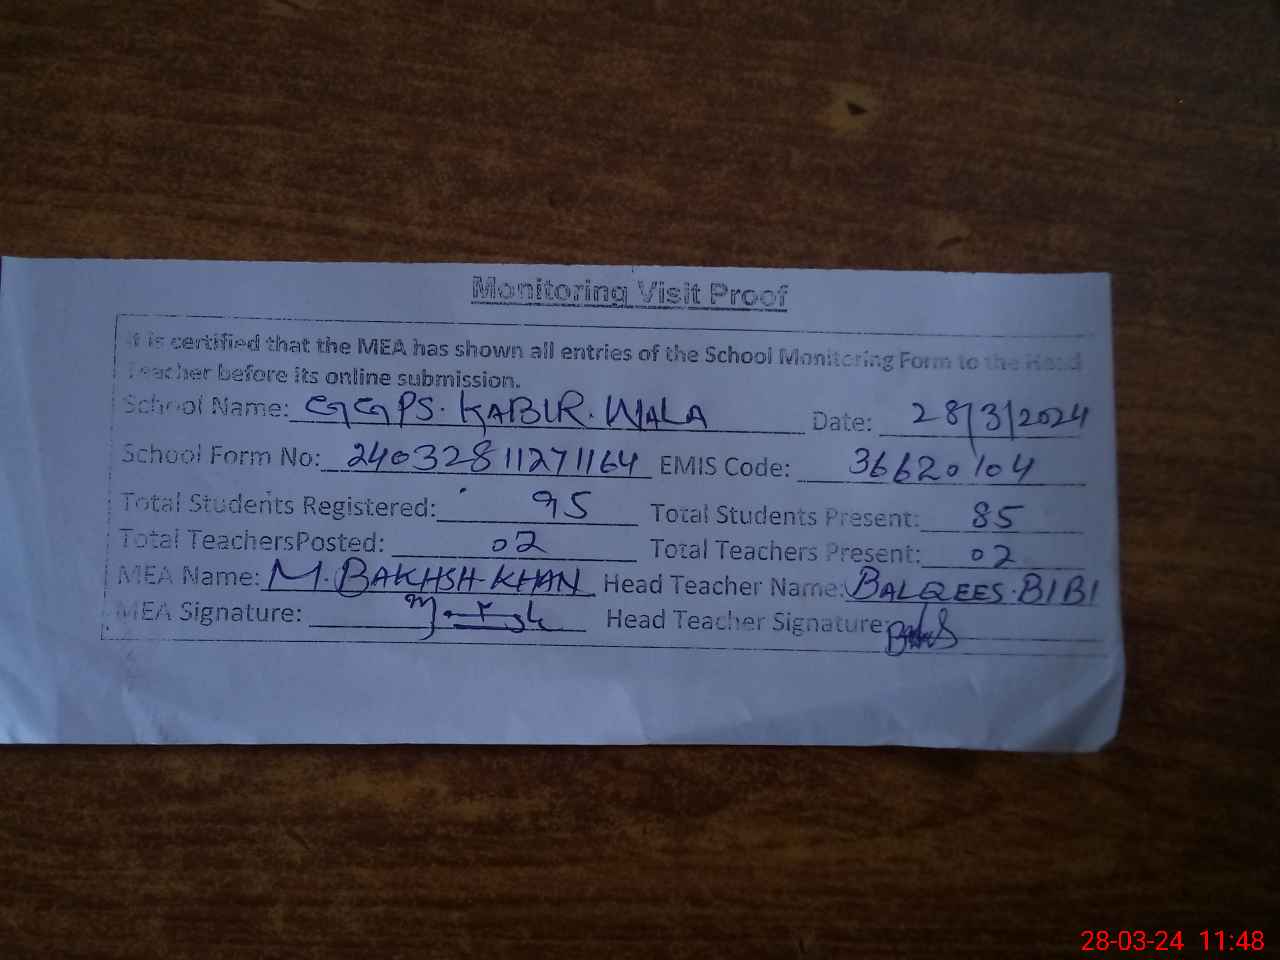 Monitoring Visit Proof
It is certified that the MEA has shown all entries of the School Monitoring Form to the Head
Teacher before its online submission.
School Name: GGPS. KABIR. WALA Date: 28/3/2024
School Form No: 24032811271164 EMIS Code: 36620104
Total Students Registered: 95 Total Students Present: 85
Total TeachersPosted: 02 Total Teachers Present: 02
MEA Name: M. BAKHSH. KHAN Head Teacher Name: BALQEES. BIBI
MEA Signature: Head Teacher Signature:
28-03-24 11:48